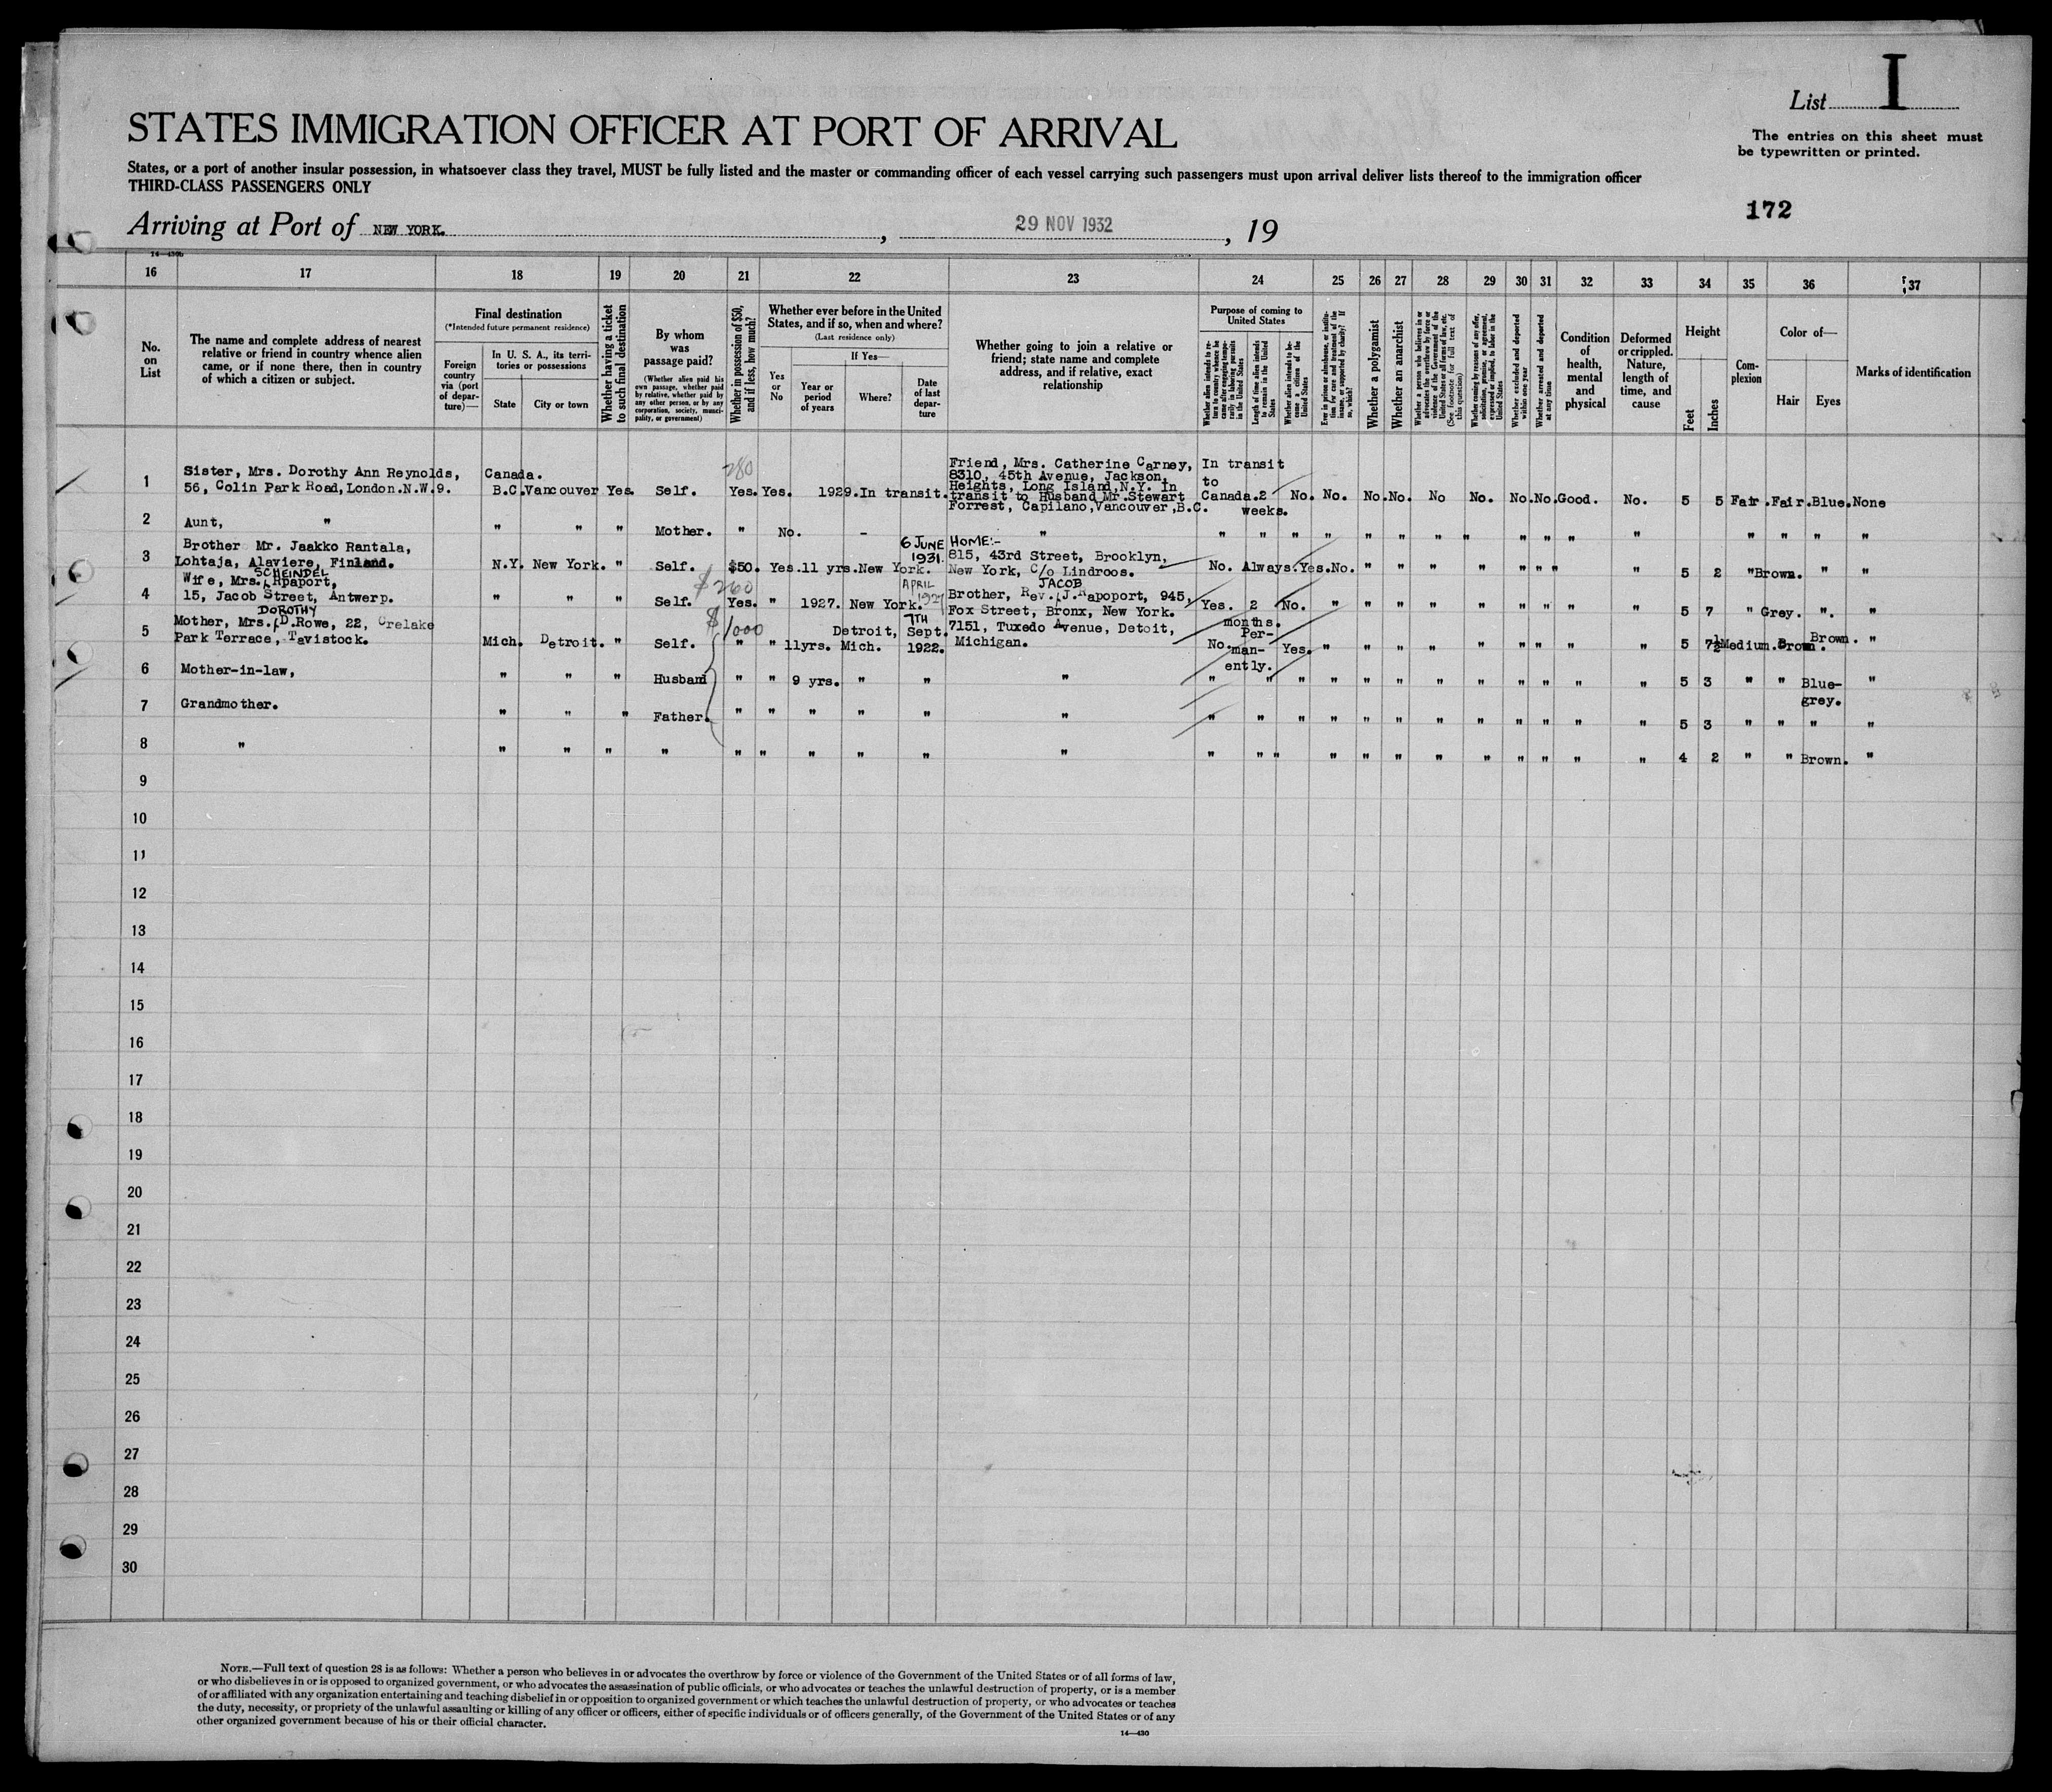 List I
STATES IMMIGRATION OFFICER AT PORT OF ARRIVAL
The entries on this sheet must
be typewritten or printed.
States, or a port of another insular possession, in whatsoever class they travel, MUST be fully listed and the master or commanding officer of each vessel carrying such passengers must upon arrival deliver lists thereof to the immigration officer
THIRD-CLASS PASSENGERS ONLY
172
Arriving at Port of NEW YORK. , 29 NOV 1932 , 19
14—430b
16 17 18 19 20 21 22 23 24 25 26 27 28 29 30 31 32 33 34 35 36 37
No.
on
List
The name and complete address of nearest
relative or friend in country whence alien
came, or if none there, then in country
of which a citizen or subject.
Final destination
(*Intended future permanent residence)
Foreign
country
via (port
of depar-
ture)—
In U. S. A., its terri-
tories or possessions
State
City or town
Whether having a ticket
to such final destination
By whom
was
passage paid?
(Whether alien paid his
own passage, whether paid
by relative, whether paid by
any other person, or by any
corporation, society, munici-
pality, or government)
Whether in possession of $50,
and if less, how much?
Whether ever before in the United
States, and if so, when and where?
(Last residence only)
Yes
or
No
If Yes—
Year or
period
of years
Where?
Date
of last
depar-
ture
Whether going to join a relative or
friend; state name and complete
address, and if relative, exact
relationship
Purpose of coming to
United States
Whether alien intends to re-
turn to country whence he
came after engaging tempo-
rarily in laboring pursuits
in the United States
Length of time alien intends
to remain in the United
States
Whether alien intends to be-
come a citizen of the
United States
Ever in prison or almshouse, or institu-
tion for care and treatment of the
insane, or supported by charity? If
so, which?
Whether a polygamist
Whether an anarchist
Whether a person who believes in or
advocates the overthrow by force or
violence of the Government of the
United States or all forms of law, etc.
(See footnote for full text of
this question)
Whether coming by reasons of any offer,
solicitation, promise, or agreement,
expressed or implied, to labor in the
United States
Whether excluded and deported
within one year
Whether arrested and deported
at any time
Condition
of
health,
mental
and
physical
Deformed
or crippled.
Nature,
length of
time, and
cause
Height
Feet
Inches
Com-
plexion
Color of—
Hair
Eyes
Marks of identification
1 Sister, Mrs. Dorothy Ann Reynolds,
56, Colin Park Road, London.N.W.9.
Canada.
B.C. Vancouver Yes. Self. 280 Yes. Yes. 1929. In transit.
Friend, Mrs. Catherine Carney,
8310, 45th Avenue, Jackson
Heights, Long Island, N.Y. In
transit to Husband Mr. Stewart
Forrest, Capilano, Vancouver, B.C.
In transit
to
Canada. 2
weeks.
No. No. No. No. No No. No. No. Good. No. 5 5 Fair. Fair. Blue. None
2 Aunt, " " " " Mother. " No. - " " " " " " " " " " " " " " " " "
3 Brother Mr. Jaakko Rantala,
Lohtaja, Alaviere, Finland.
N.Y. New York. " Self. $50. Yes. 11 yrs. New York. 6 JUNE
1931.
HOME:-
815, 43rd Street, Brooklyn,
New York, C/o Lindroos.
No. Always. Yes. No. " " " " " " " " 5 2 " Brown. " "
4 Wife, Mrs. SCHEINDEL Rpaport,
15, Jacob Street, Antwerp.
" " " Self. $260 Yes. " 1927. New York. APRIL
1927
Brother, Rev. JACOB J. Rapoport, 945,
Fox Street, Bronx, New York.
Yes. 2
months.
No. " " " " " " " " " 5 7 " Grey. ". "
5 Mother, Mrs. DOROTHY D. Rowe, 22, Crelake
Park Terrace, Tavistock.
Mich. Detroit. " Self. $1000 " " 11yrs. Detroit,
Mich. 7TH
Sept.
1922.
7151, Tuxedo Avenue, Detoit,
Michigan.
No. Per-
man-
ently.
Yes. " " " " " " " " " 5 7½ Medium. Brown. Brown. "
6 Mother-in-law, " " " Husband " " 9 yrs. " " " " " " " " " " " " " " " 5 3 " " Blue-
grey. "
7 Grandmother. " " " Father. " " " " " " " " " " " " " " " " " " 5 3 " " " "
8 " " " " " " " " " " " " " " " " " " " " " " " 4 2 " " Brown. "
9
10
11
12
13
14
15
16
17
18
19
20
21
22
23
24
25
26
27
28
29
30
NOTE.—Full text of question 28 is as follows: Whether a person who believes in or advocates the overthrow by force or violence of the Government of the United States or of all forms of law,
or who disbelieves in or is opposed to organized government, or who advocates the assassination of public officials, or who advocates or teaches the unlawful destruction of property, or is a member
of or affiliated with any organization entertaining and teaching disbelief in or opposition to organized government or which teaches the unlawful destruction of property, or who advocates or teaches
the duty, necessity, or propriety of the unlawful assaulting or killing of any officer or officers, either of specific individuals or of officers generally, of the Government of the United States or of any
other organized government because of his or their official character.
14—430